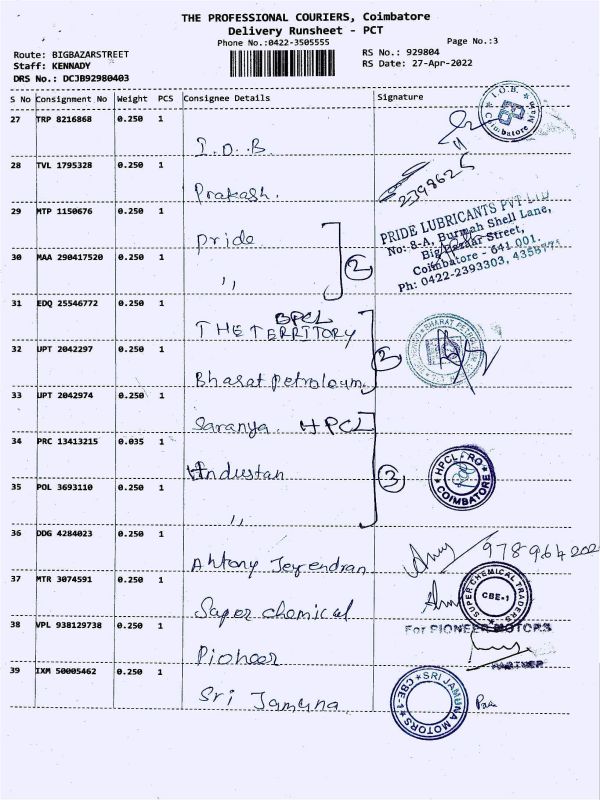 THE PROFESSIONAL COURIERS, Coimbatore
Delivery Runsheet - PCT
Phone No.:0422-3505555
Page No.:3
Route: BIGBAZARSTREET
RS No.: 929804
Staff: KENNADY
RS Date: 27-Apr-2022
DRS No.: DCJB92980403
S No Consignment No Weight PCS Consignee Details Signature
27 TRP 8216868 0.250 1
I.O.B.
I.O.B. Coimbatore
28 TVL 1795328 0.250 1
Prakash.
2398625
29 MTP 1150676 0.250 1
Pride
PRIDE LUBRICANTS PVT LTD
No: 8-A, Burmah Shell Lane,
Big Bazaar Street,
Coimbatore - 641 001.
Ph: 0422-2393303,
30 MAA 290417520 0.250 1
,,
2
31 EDQ 25546772 0.250 1
BPCL
THE TERRITORY
BHARAT
32 UPT 2042297 0.250 1
Bharat Petroleum
2
33 UPT 2042974 0.250 1
Saranya. HPCL
34 PRC 13413215 0.035 1
Hindustan
HPCL-RO
COIMBATORE
35 POL 3693110 0.250 1
,,
3
36 DDG 4284023 0.250 1
Antony Jeyendran
37 MTR 3074591 0.250 1
Super chemical
SUPER CHEMICAL TRADERS
CBE-1
38 VPL 938129738 0.250 1
Pioneer
For PIONEER MOTORS
PARTNER
39 IXM 50005462 0.250 1
Sri Jamuna
SRI JAMUNA MOTORS
CBE-1